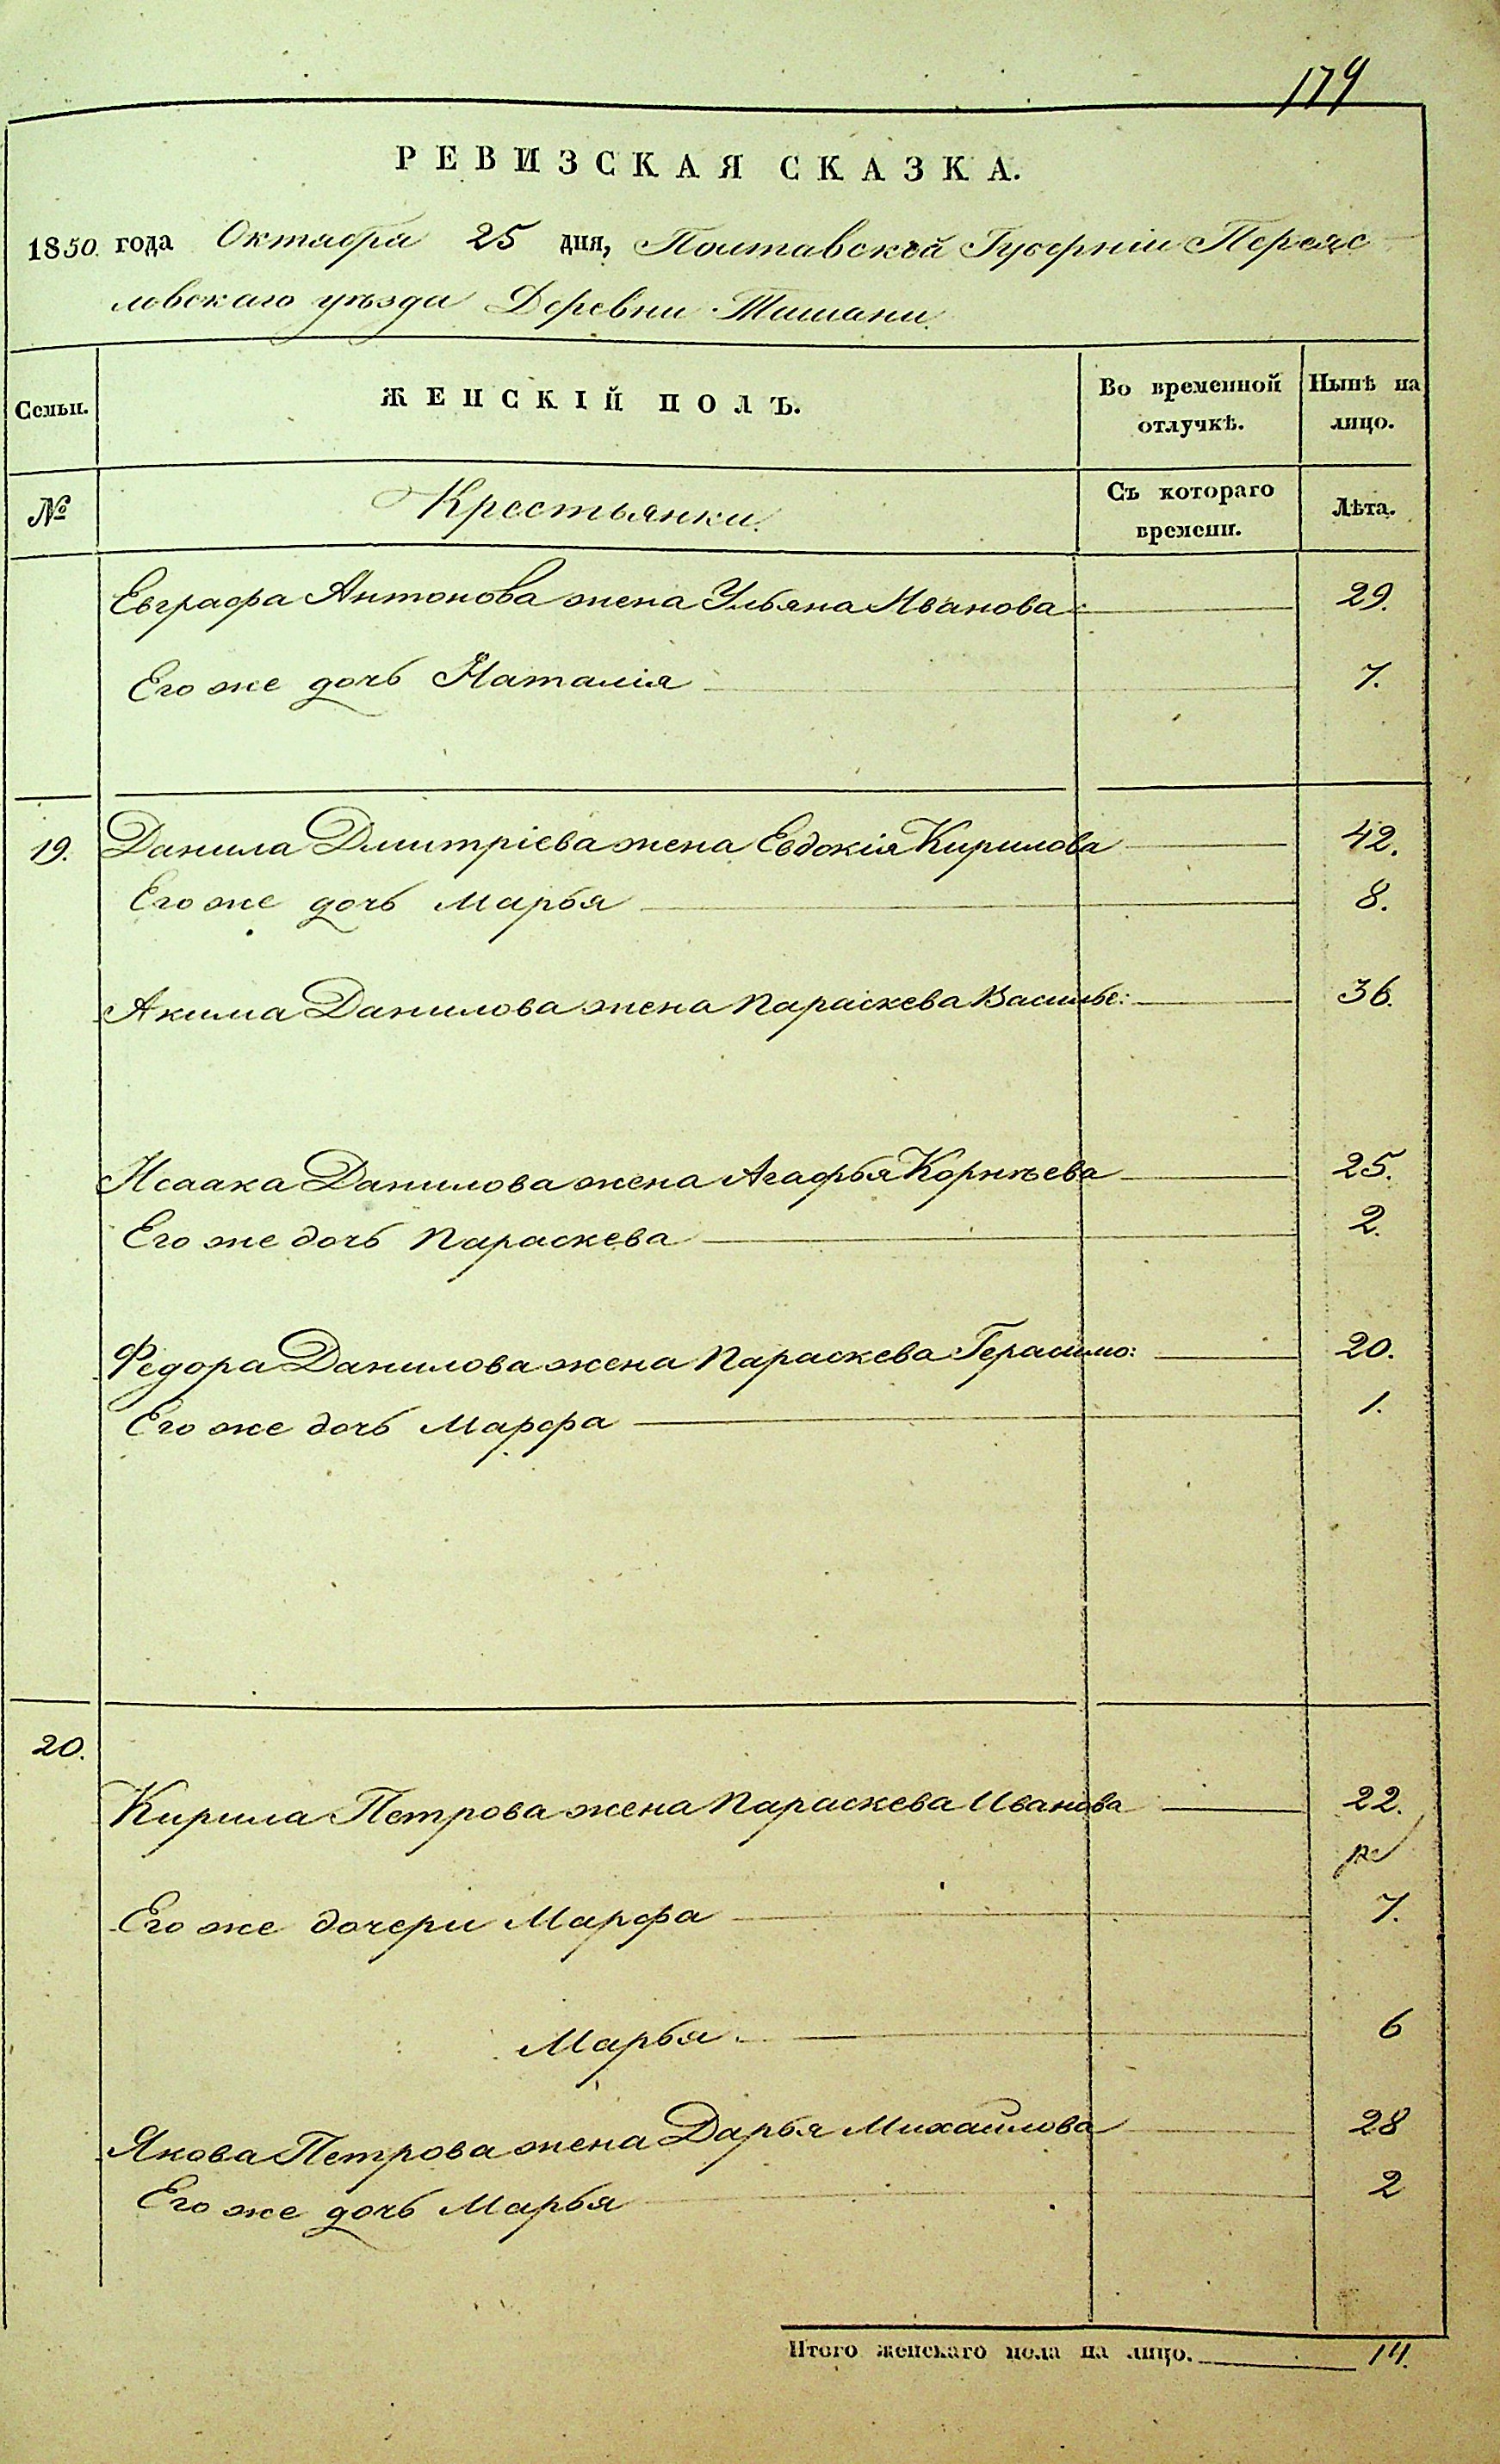 179
РЕВИЗСКАЯ СКАЗКА.
1850. года Октября 25 дня, Полтавской Губерніи Переяс
ловскаго уѣзда Деревни Тишани.
Семьи.
ЖЕНСКІЙ ПОЛЪ.
Во временной отлучкѣ.
Нынѣ на лицо.
№
Крестьянки.
Съ котораго времени.
Лѣта.
Евграфа Антонова жена Ульяна Иванова 29.
Его же дочь Наталія 7.
19. Данила Дмитріева жена Евдокія Кирилова 42.
Его же дочь Марья 8.
Акима Данилова жена Параскева Василье: 36.
Исаака Данилова жена Агафья Корнѣева 25.
Его же дочь Параскева 2.
Федора Данилова жена Параскева Герасимо: 20.
Его же дочь Марфа 1.
20.
Кирила Петрова жена Параскева Иванова 22.
Его же дочери Марфа 7.
Марья 6
Якова Петрова жена Дарья Михайлова 28
Его же дочь Марья 2
Итого женскаго пола на лицо. 14.